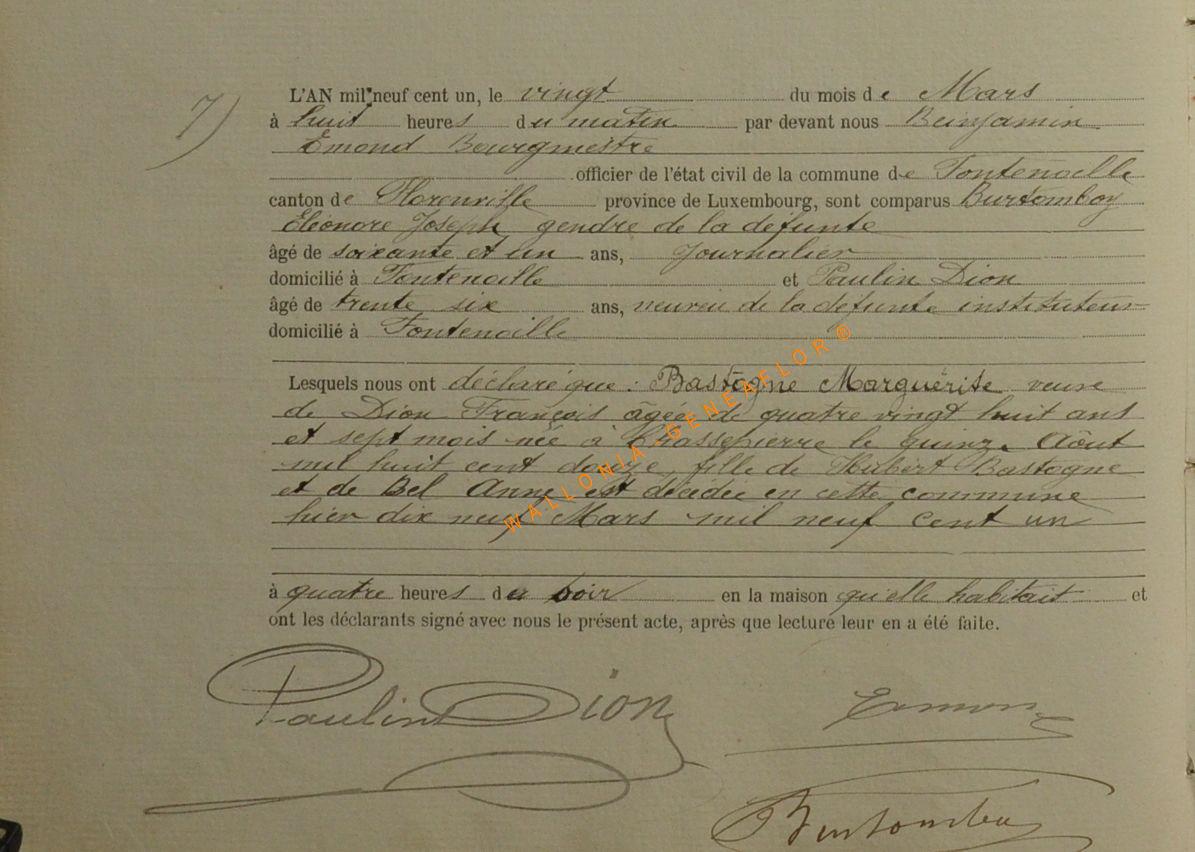 7)
L'AN mil neuf cent un, le vingt du mois de Mars
à huit heures du matin par devant nous Benjamin
Emond Bourgmestre
officier de l'état civil de la commune de Fontenoille
canton de Florenville province de Luxembourg, sont comparus Burtomboy
Eléonore Joseph, gendre de la défunte
âgé de soixante et un ans, Journalier
domicilié à Fontenoille et Paulin Dion
âgé de trente six ans, neuveu de la defunte instituteur
domicilié à Fontenoille
Lesquels nous ont déclaré que : Bastogne Marguérite veuve
de Dion François âgée de quatre vingt huit ans
et sept mois née à Chassepierre le quinze Aôut
mil huit cent douze, fille de Hubert Bastogne
et de Bel Anne est décédée en cette commune
hier dix neuf Mars mil neuf cent un
à quatre heures du soir en la maison qu'elle habitait et
ont les déclarants signé avec nous le présent acte, après que lecture leur en a été faite.
WALLONIA-GENEAFLOR®
Paulin Dion
Emond